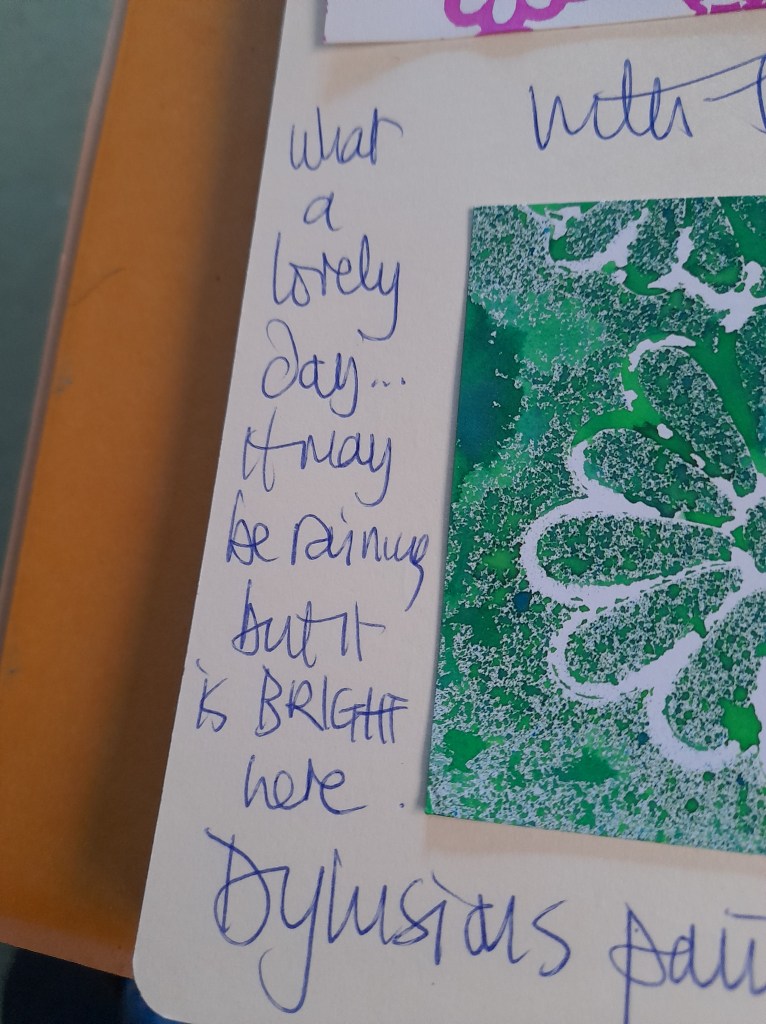 with
what
a
lovely
day...
it may
be raining
but it
is BRIGHT
here.
Dylusions